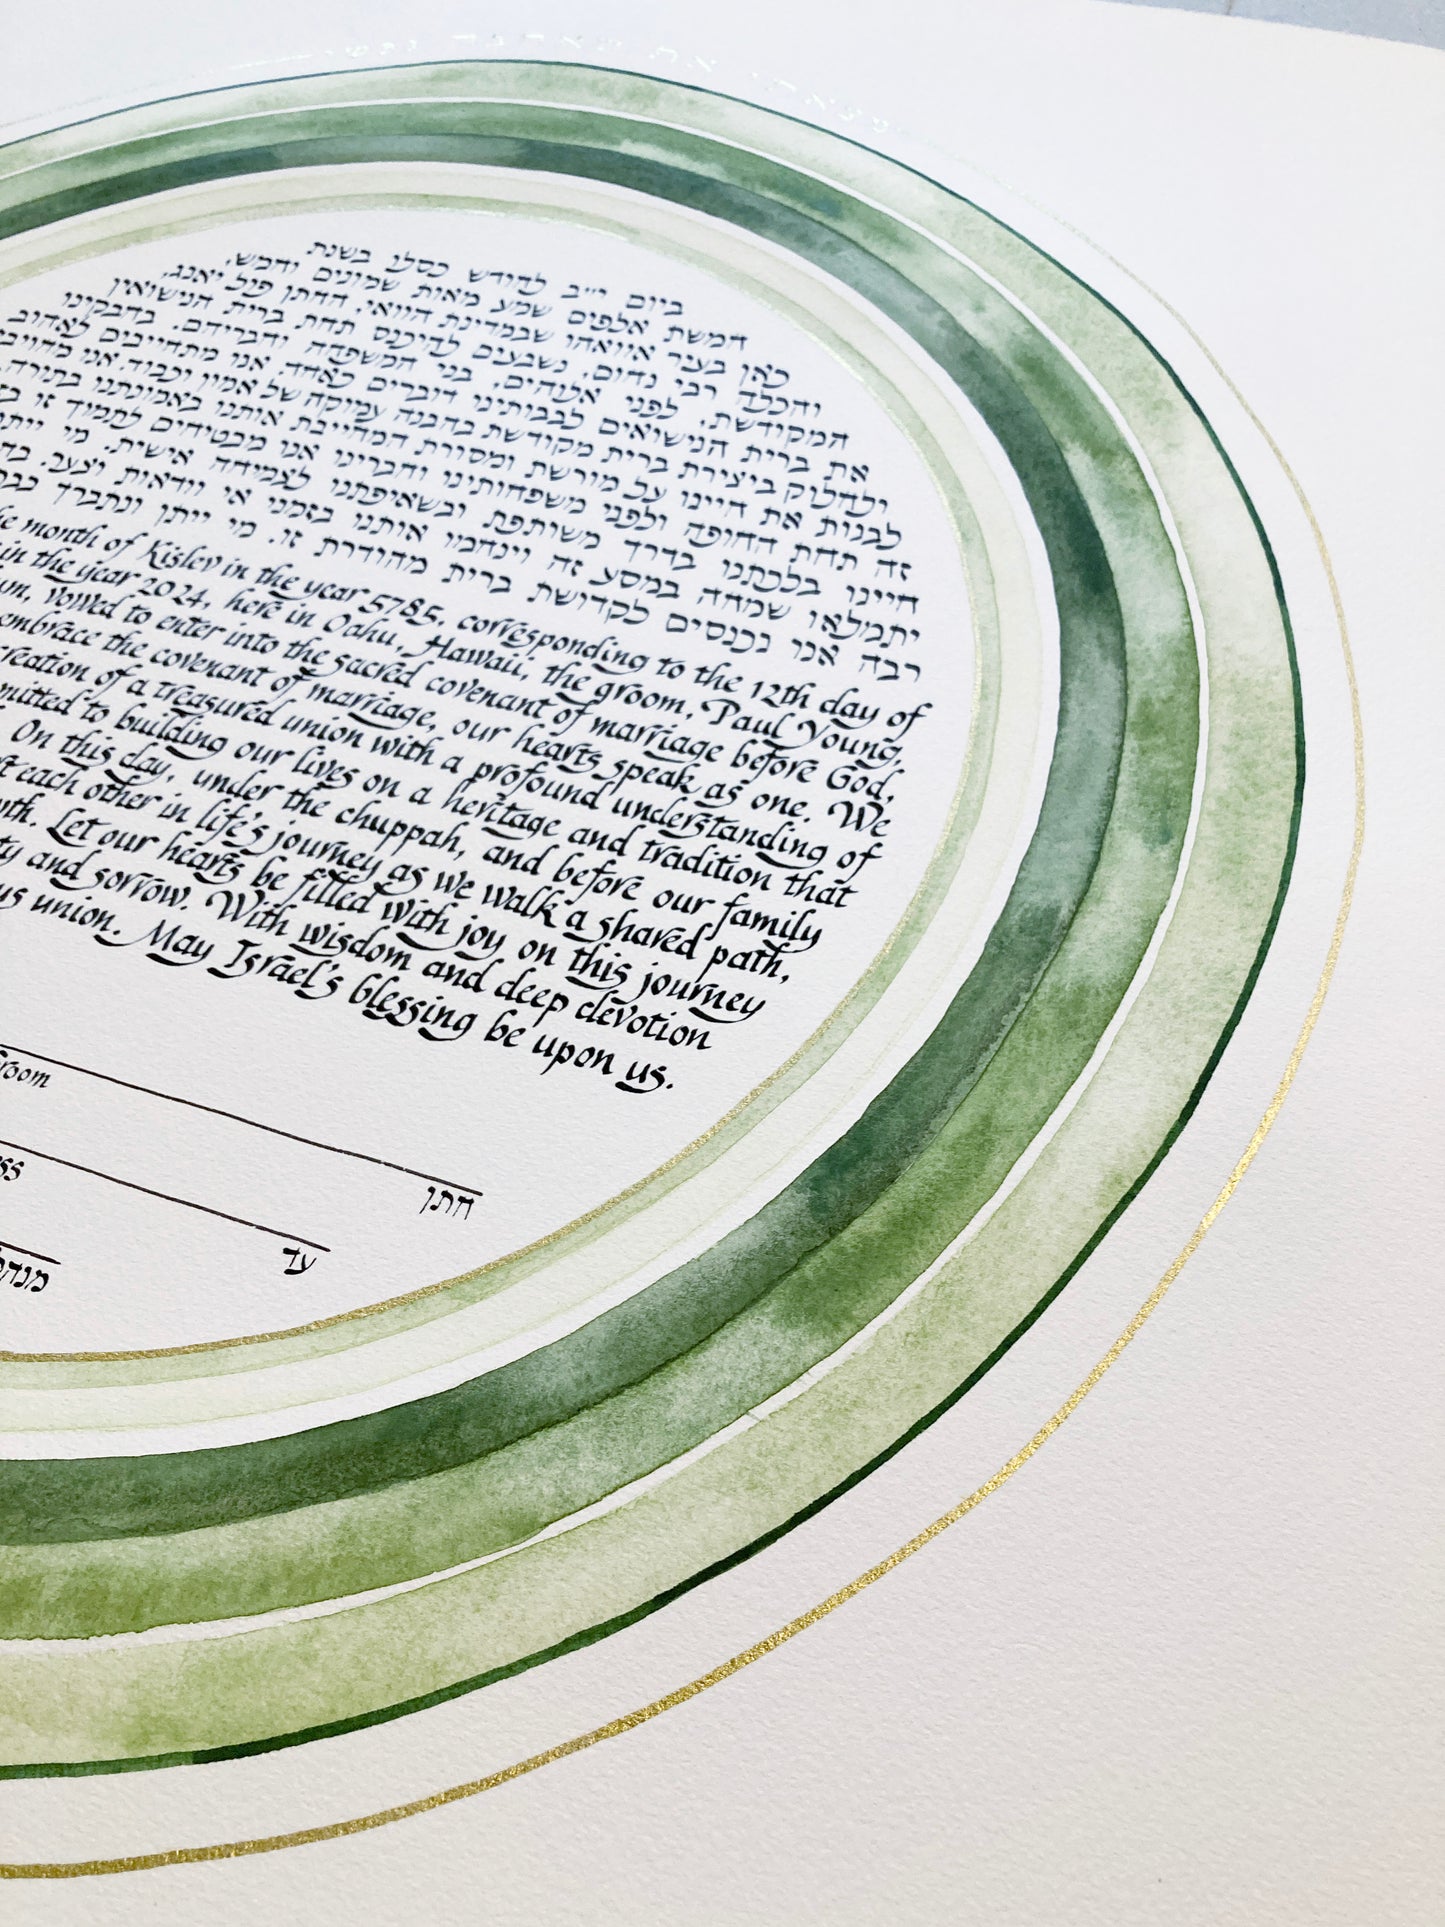 מצאתי את שאהבה נפשי
ביום י״ב לחודש כסלו בשנת
חמשת אלפים שבע מאות שמונים וחמש,
כאן בעיר אוואהו שבמדינת הוואי, החתן פול יאנג,
והכלה רבי נדום, נשבעים להיכנס תחת ברית הנישואין
המקודשת, לפני אלוהים, בני המשפחה וחבריהם. בחבקינו
את ברית הנישואים לבבותינו דוברים כאחד. אנו מתחייבים לאהוב
ולחלוק ביצירת ברית מקודשת בהבנה עמוקה של אמון וכבוד. אנו
לבנות את חיינו על מורשת ומסורת המחייבת אותנו באמונתנו בתורה.
זה תחת החופה ולפני משפחותינו וחברינו אנו מבטיחים לתמוך זו
חיינו בלכתנו בדרך משותפת ובשאיפתנו לצמיחה אישית. מי
יתמלאו שמחה במסע זה וינחמו אותנו בזמני אי וודאות וצער.
רבה אנו נכנסים לקדושת ברית מהודרת זו. מי ייתן ונתברך
month of Kislev in the year 5785, corresponding to the 12th day of
in the year 2024, here in Oahu, Hawaii, the groom, Paul Young,
vowed to enter into the sacred covenant of marriage before God,
embrace the covenant of marriage, our hearts speak as one. We
creation of a treasured union with a profound understanding of
to building our lives on a heritage and tradition that
On this day, under the chuppah, and before our family
each other in life's journey as we walk a shared path,
Let our hearts be filled with joy on this journey
and sorrow. With wisdom and deep devotion
union. May Israel's blessing be upon us.
חתן
עד